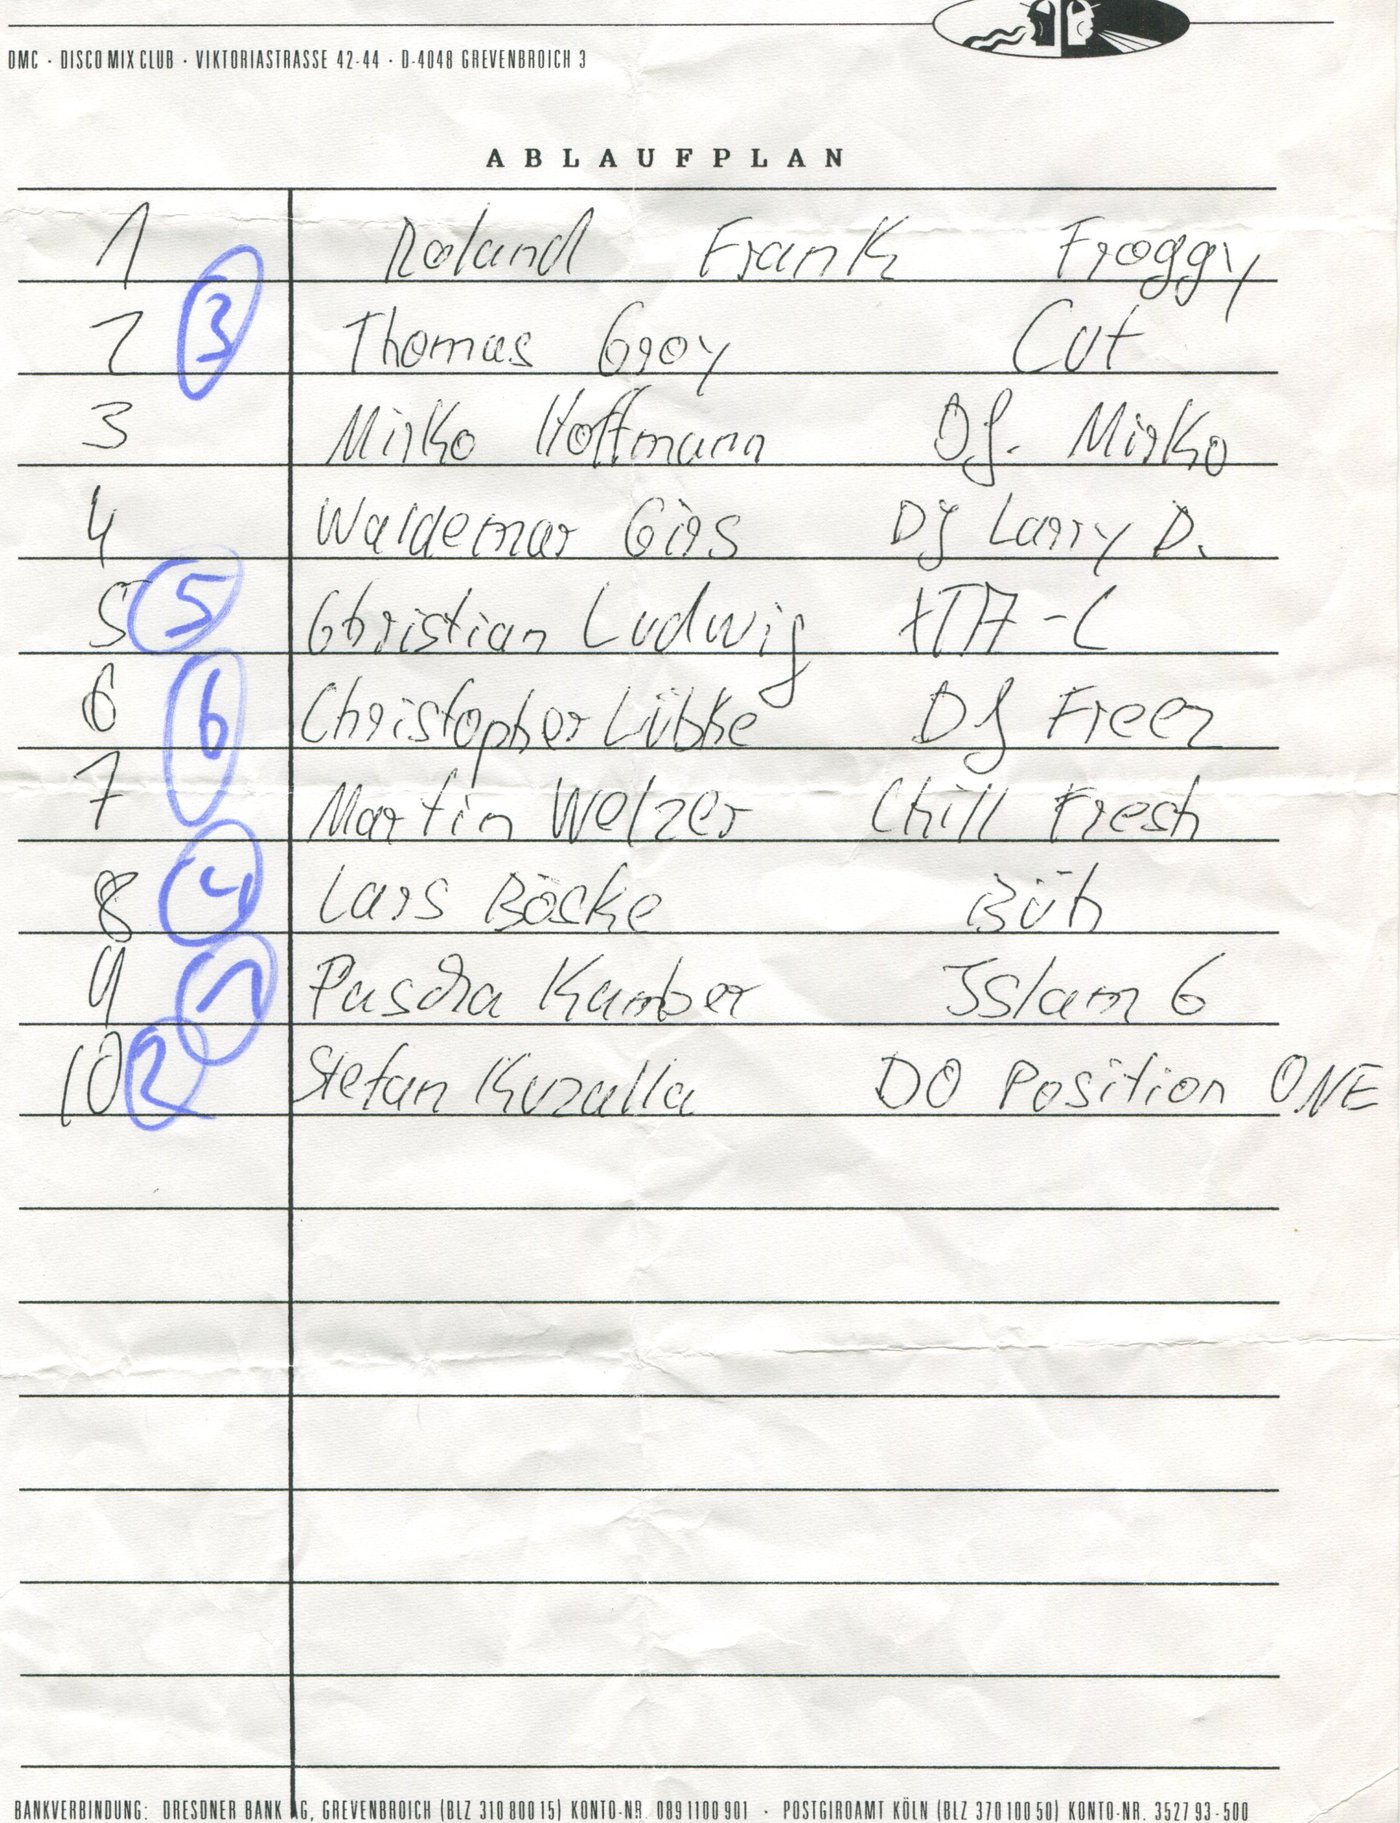 DMC · DISCO MIX CLUB · VIKTORIASTRASSE 42-44 · D-4048 GREVENBROICH 3
ABLAUFPLAN
1 Roland Frank Froggy
2 3 Thomas Groy Cut
3 Mirko Hoffmann DJ. Mirko
4 Waldemar Girs DJ Larry D.
5 5 Christian Ludwig XTA-C
6 6 Christopher Lübke DJ Freez
7 Martin Welzer Chill Fresh
8 4 Lars Böske Büh
9 1 Pascha Kamber Islam 6
10 2 Stefan Kuzalla DO Position ONE
BANKVERBINDUNG: DRESDNER BANK AG, GREVENBROICH (BLZ 310 800 15) KONTO-NR. 089 1100 901 · POSTGIROAMT KÖLN (BLZ 370 100 50) KONTO-NR. 3527 93-500